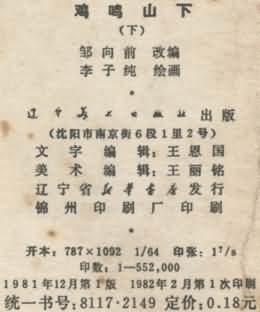 鸡鸣山下
（下）
邹向前 改编
李子纯 绘画
辽宁美术出版社出版
（沈阳市南京街6段1里2号）
文字编辑：王恩国
美术编辑：王丽铭
辽宁省新华书店发行
锦州印刷厂印刷
开本：787×1092 1/64 印张：1⅞
印数：1—552,000
1981年12月第1版 1982年2月第1次印刷
统一书号：8117·2149 定价：0.18元